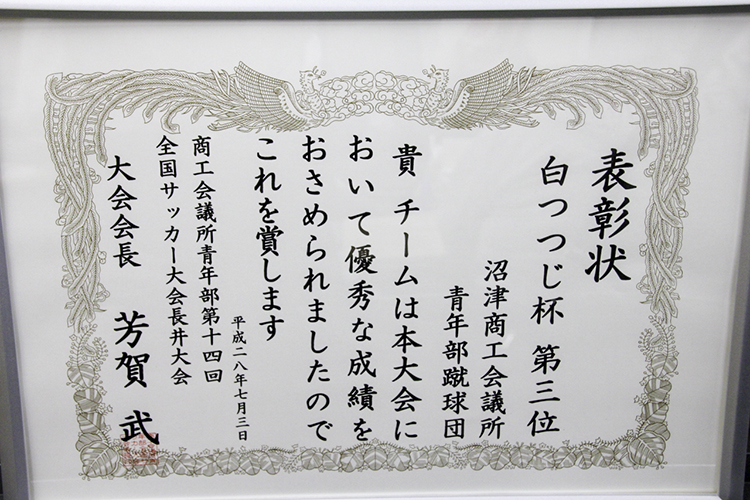 表彰状
白つつじ杯 第三位
沼津商工会議所
青年部蹴球団
貴 チームは本大会に
おいて優秀な成績を
おさめられましたので
これを賞します
平成二八年七月三日
商工会議所青年部第十四回
全国サッカー大会長井大会
大会会長 芳賀 武